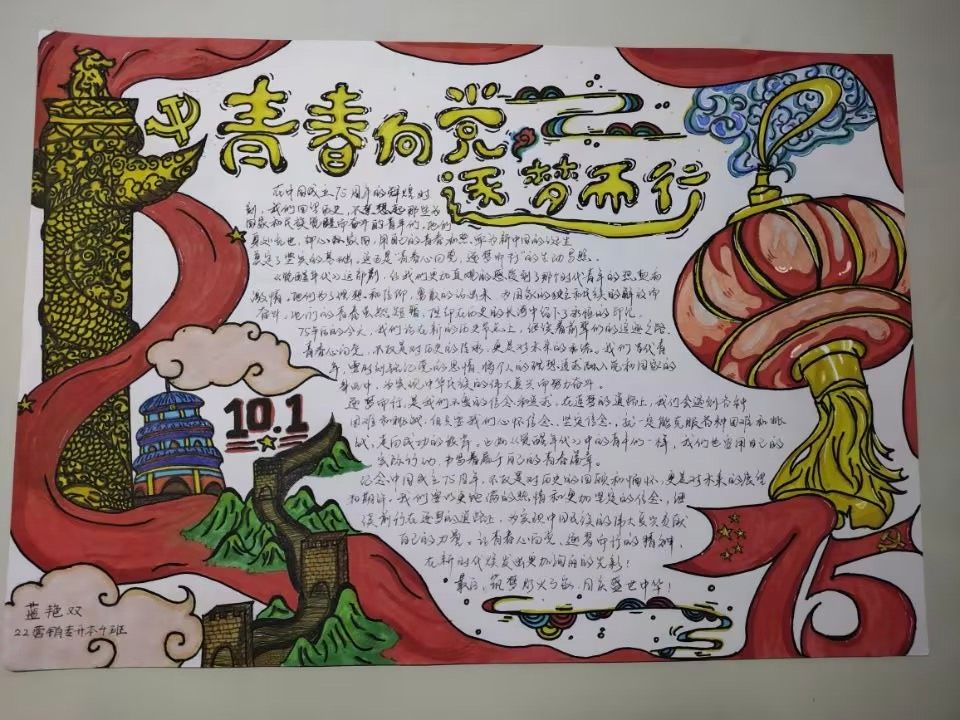 青春向党
逐梦而行
在中国成立75周年的辉煌时
刻，我们回望历史，不禁想起那些为
国家和民族觉醒而奋斗的青年们。他们
用自己的青春和热
奠定了坚实的基础。这正是"青春心向党，逐梦而行"的生动写照。
《觉醒年代》这部剧，让我们更加直观的感受到了那个时代青年的热血和
激情。他们为了理想和信仰，勇敢的站出来，为国家的独立和民族的解放而
奋斗。他们的青春虽然短暂，但却在历史的长河中留下了永恒的印记。
75年后的今天，我们站在新的历史节点上，继续着前辈们的追逐之路。
青春心向党，不仅是对历史的传承，更是对未来的承诺。我们当代青
年，要时刻铭记党的恩情，将个人的理想追求融入党和国家的
事业中，为实现中华民族的伟大复兴而努力奋斗。
逐梦而行，是我们不变的信念和追求，在逐梦的道路上，我们会遇到各种
困难和挑战，但只要我们心怀信念、坚定信念，就一定能克服各种困难和挑
战，走向成功的彼岸。正如《觉醒年代》中的青年们一样，我们也要用自己的
实际行动，书写着属于自己的青春篇章。
纪念中国成立75周年，不仅是对历史的回顾和缅怀，更是对未来的展望
和期许，我们要以更饱满的热情和更加坚定的信念，继
续前行在逐梦的道路上，为实现中国民族的伟大复兴贡献
自己的力量。让青春心向党，逐梦而行的精神，
在新时代焕发出更加绚丽的光彩！
最后，筑梦灯火与，月庆盛世中华！
10.1
75
蓝艳双
22营销专升本4班